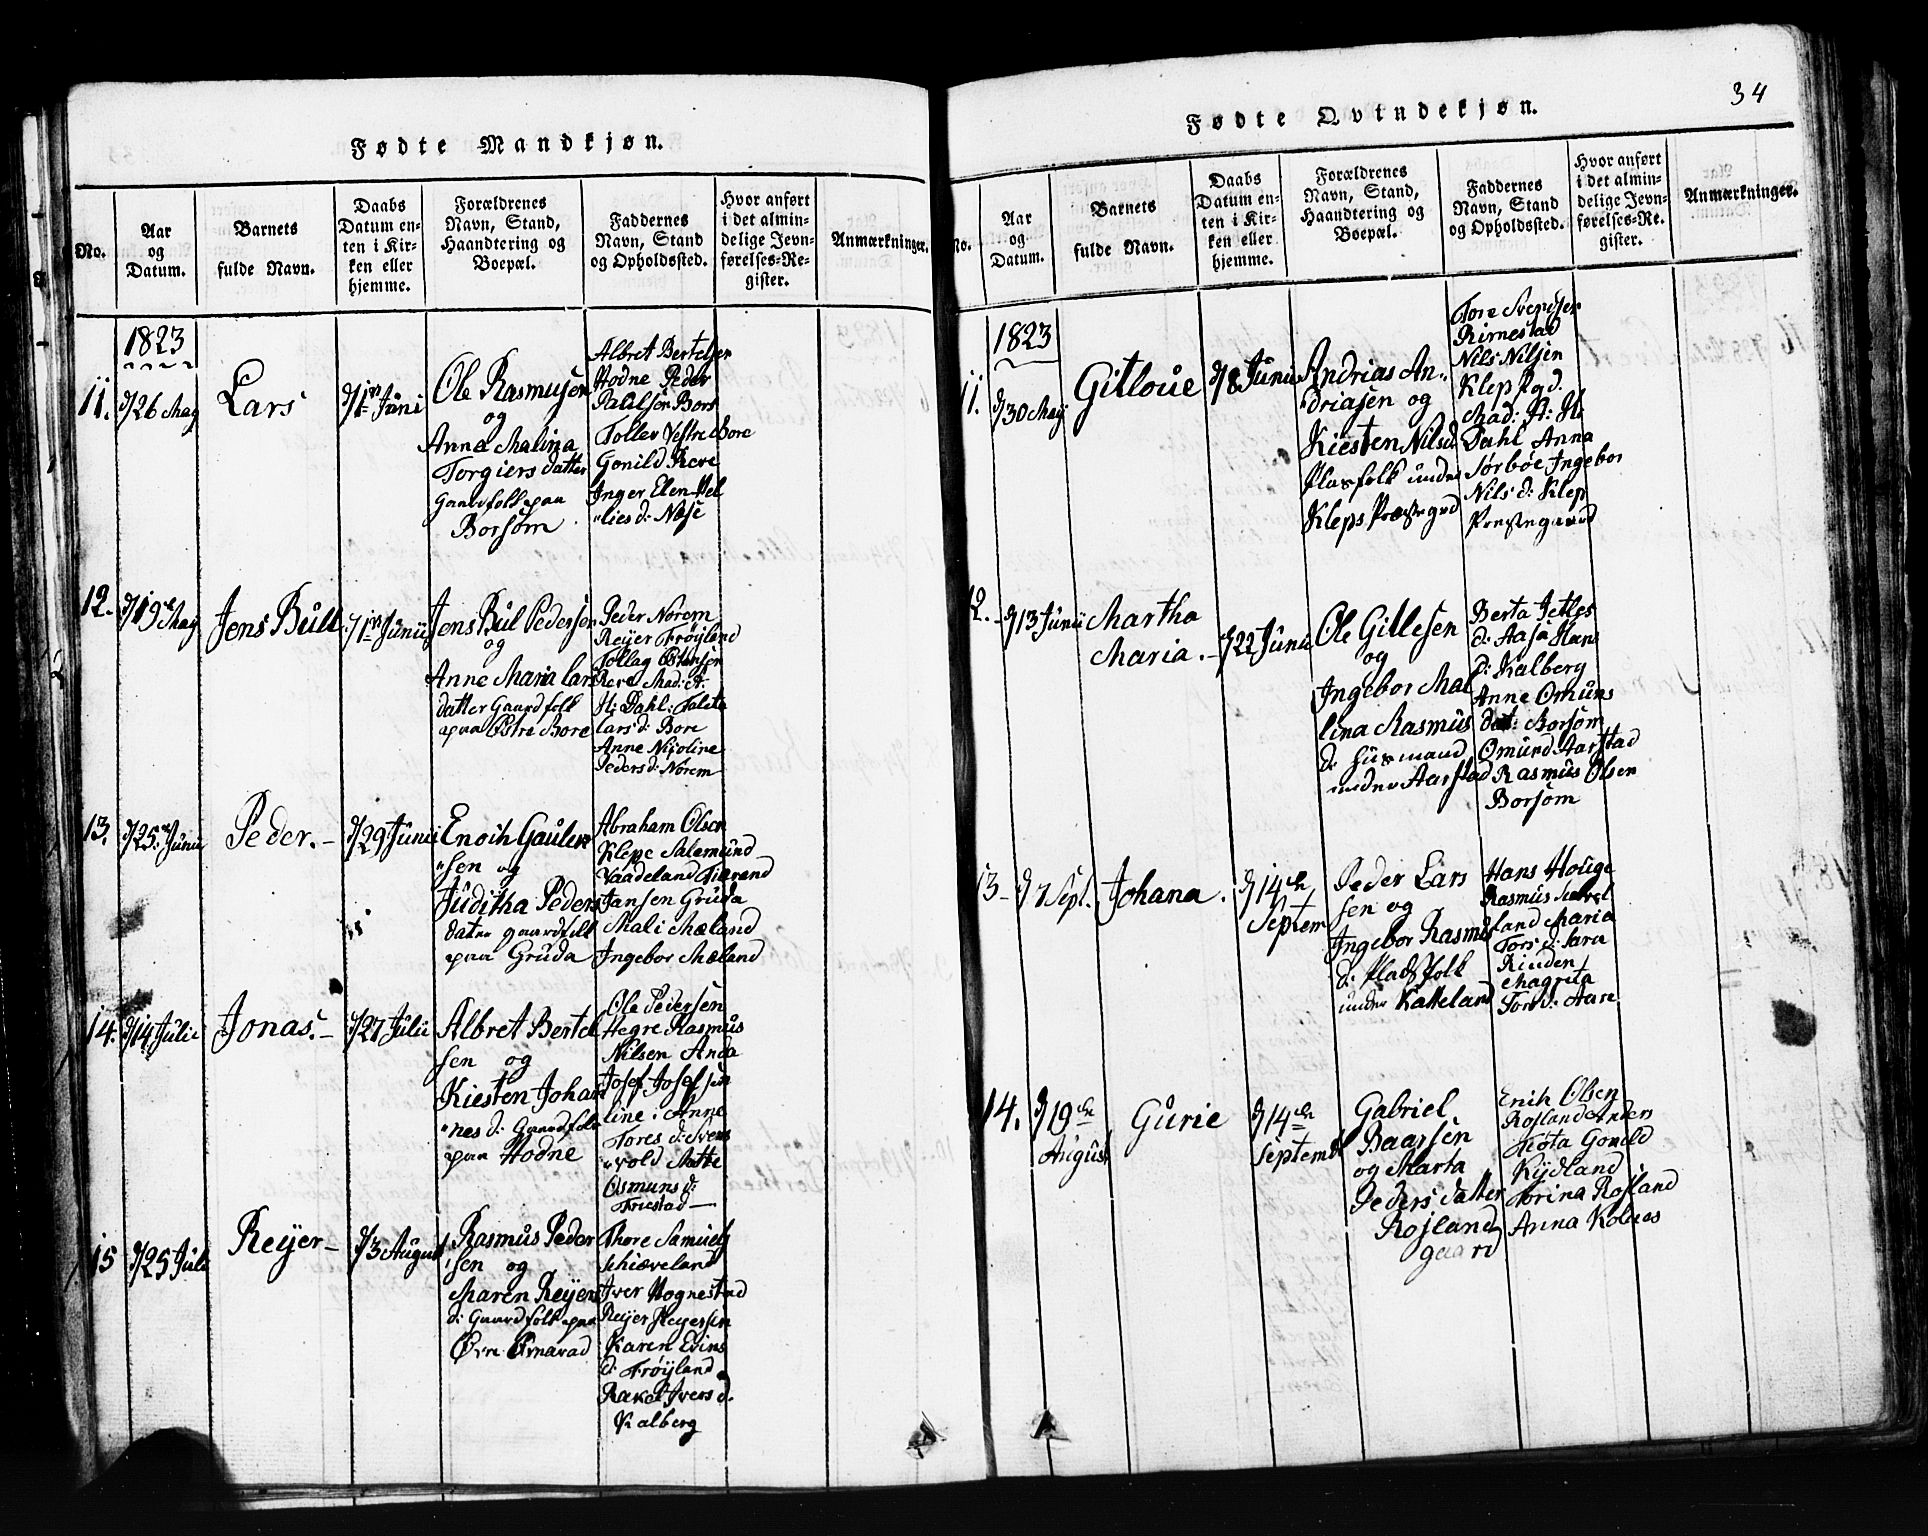 Fødte Mandkjøn.
No.
Aar
og
Datum.
Barnets
fulde Navn.
Daabs
Datum en-
ten i Kir-
ken eller
hjemme.
Forældrenes
Navn, Stand,
Haandtering og
Boepæl.
Faddernes
Navn, Stand
og Opholdssted.
Hvor anført
i det almin-
delige Jevn-
førelses-Re-
gister.
Anmærkninger.
1823
11.
d/26 May
Lars
d/1 Juni
Ole Rasmusen
og
Anne Malina
Torgiers datter
Gaardfolk paa
Borsøm
Albret Bertelsen
Hodne Peder
Paalsen Bors
Tollev Vestre Bore
Gonild Reve
Inger Elen Mel
"lies d: Næse
12.
d/19 May
Jens Bull
d/1 Junii
Jens Bul Pedersen
og
Anne Maria Lars
datter Gaardfolk
paa Østre Bore
Peder Norem
Reijer Frøyland
Tollag Østensen
Reve Mad: A.
H: Dahl: Talita
Lars d: Bore
Anne Nijoline
Peders d: Norem
13.
d/25 Junii
Peder.-
d/29 Junii
Enoch Gaulen
"sen og
Juditha Peders
dater gaardfolk
paa Gruda
Abraham Olsen
Klepe Salemund
Vaadeland Tiærand
Jansen Gruda
Mali Mæland
Ingebor Mæland
14.
d/14 Julii
Jonas.-
d/27 Julii
Albret Bertel
sen og
Kiesten Johan
"nes d: Gaardfolk
paa Hodne
Ole Pedersen
Hegre Rasmus
Nilsen Anda
Josef Josefsen
line: Anne
Tores d: Svens
"vold Mette
Osmuns d:
Friestad —
15
d/25 Juli
Reijer-
d/3 August
Rasmus Peder
sen og
Maren Reijers
d: Gaardfolk paa
Øvre Øvnavad
Thore Samuels
Schiæveland
Iver Hognestad
Reijer Reyersen
Karen Evins
d: Frøijland
Rakel Ivers d.
Kalberg
34
Fødte Qvindekjøn.
No.
Aar
og
Datum.
Barnets
fulde Navn.
Daabs
Datum en-
ten i Kir-
ken eller
hjemme.
Forældrenes
Navn, Stand,
Haandtering og
Boepæl.
Faddernes
Navn, Stand
og Opholdssted.
Hvor anført
i det almin-
delige Jevn-
førelses-Re-
gister.
Anmærkninger.
1823
11.
d/30 May
Gitloue
d/8 Junii
Andrias An-
"driasen og
Kiesten Nils d
Plasfolk under
Kleps Præstegrd
Tore Svendsen
Rimestad
Nils Nilsen
Klep Pgd.
Mad: A: H.
Dahl Anna
Sørbøe Ingebor
Nils d: Klep
Prestegaard
12.
d/13 Junii
Martha
Maria.-
d/22 Junii
Ole Gitlesen
og
Ingebor Mal
lina Rasmus
d: Husmand
under Aarstad
Berta Jetles
d: Aasa Hans
d: Kalberg
Anne Omuns
dat: Borsøm
Omund Aarstad
Rasmus Olsen
Borsøm
13-
d/7 Sept.
Johana.
d/14
Septem
Peder Lars
sen og
Ingebor Rasmus
d: Pladsfolk
under Katteland
Hans Houge
Rasmus
land Maria
Tors d: Sara
Rinden
Magreta
Tors d: Aase
14.
d/19
August
Gurie
d/14
Septemb
Gabriel
Baarsen
og Marta
Peders datter
Rosland
gaard
Erich Olsen
Rosland Anders
Motta Gonild
Kydland
Torina Rosland
Anna Kolnes